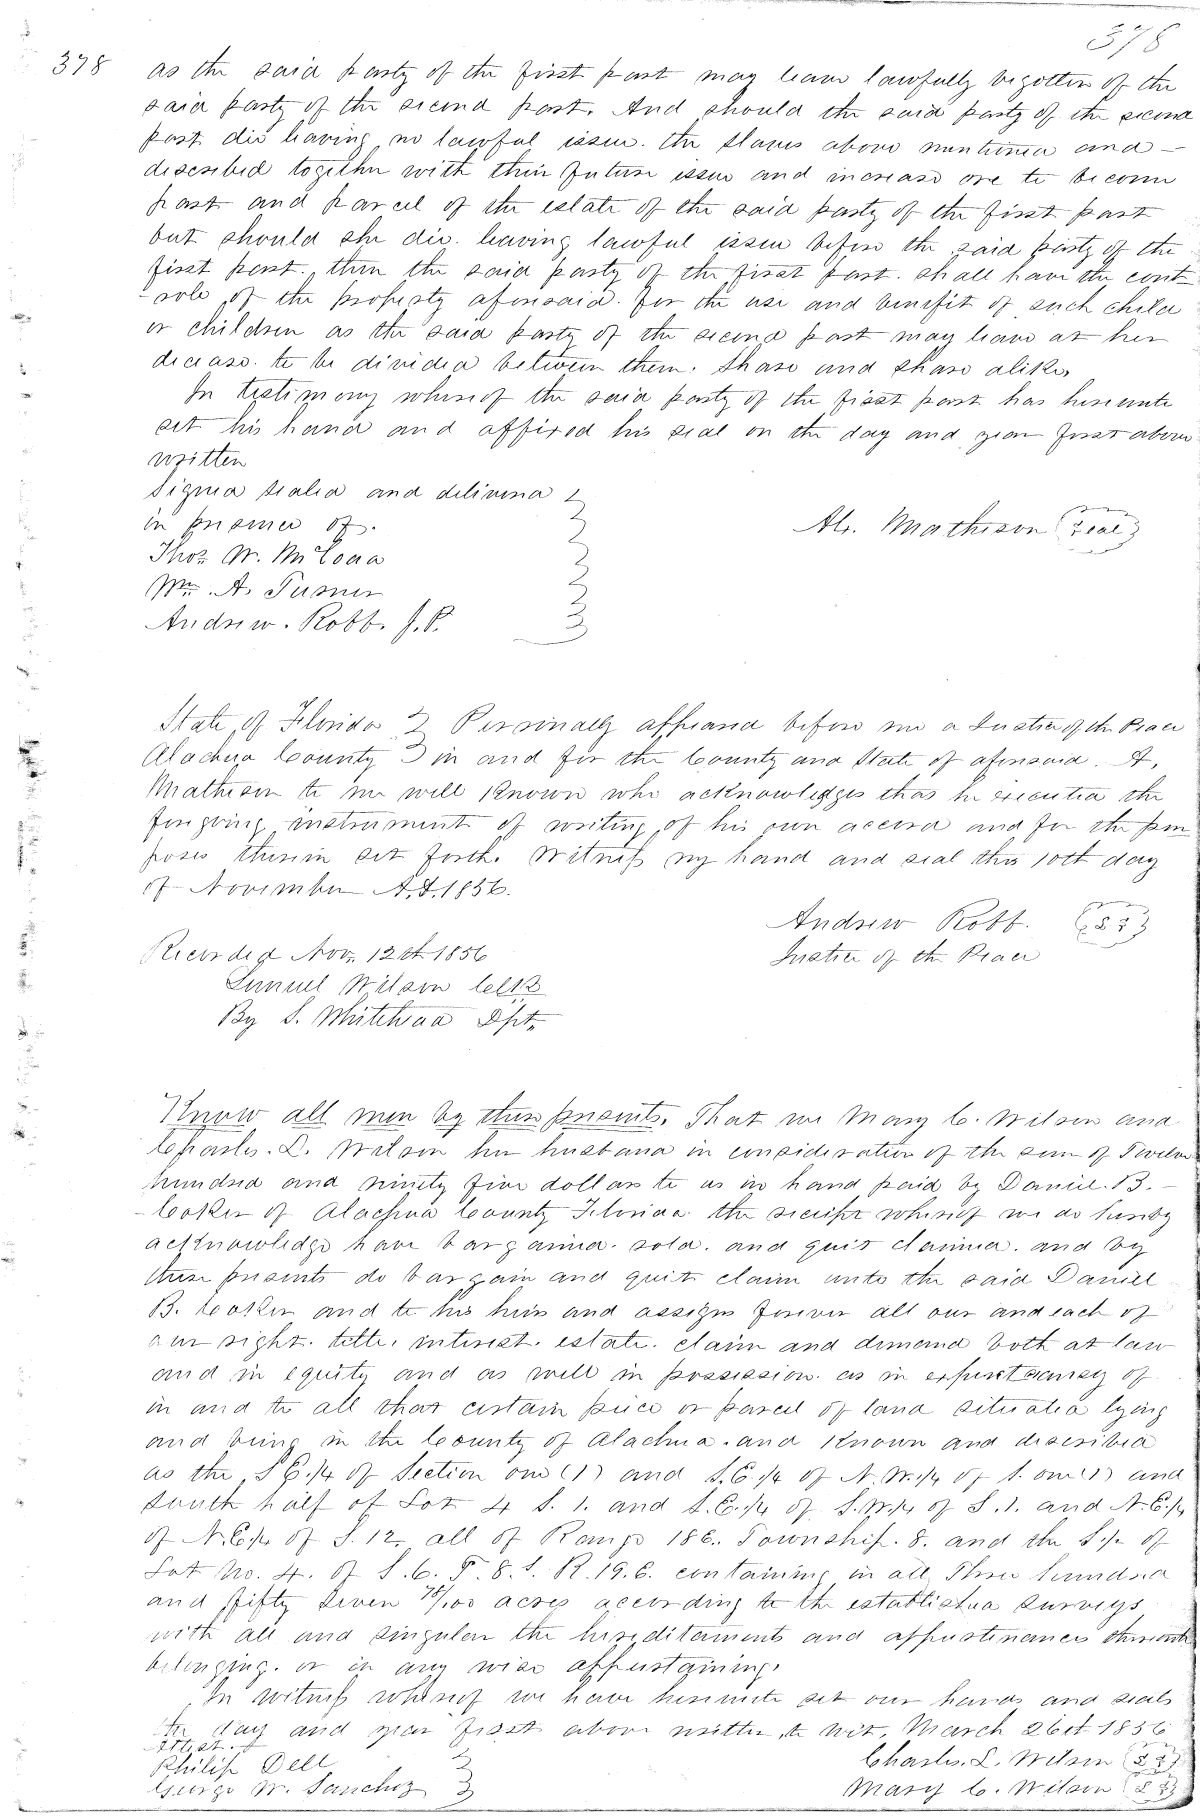 378
378 as the said party of the first part may have lawfully begotten of the
said party of the second part. And should the said party of the second
part die leaving no lawful issue. the slaves above mentioned and —
described together with their future issue and increase are to become
part and parcel of the estate of the said party of the first part
but should she die. leaving lawful issue before the said party of the
first part. then the said party of the first part. shall have the cont
-role of the property aforesaid. for the use and benefit of such child
or children as the said party of the second part may leave at her
decease. to be divided between them. share and share alike,
In testimony whereof the said party of the first part has hereunto
set his hand and affixed his seal on the day and year first above
written
Signed sealed and delivered
in presence of.
Al. Matheson (Seal)
Thos. W. McCoaa
Wm. A. Turner
Andrew. Robb. J.P.
State of Florida } Personally appeared before me a Justice of the Peace
Alachua County } in and for the County and State of aforesaid. A.
Matheson to me well known who acknowledges that he executed the
foregoing instrument of writing of his own accord and for the pur
poses therein set forth. Witness my hand and seal this 10th day
of November A.D. 1856.
Andrew Robb. (LS)
Justice of the Peace
Recorded Nov. 12th 1856
Lemuel Wilson Celk
By S. Whitehead Dpt.
Know all men by these presents. That we Mary C. Wilson and
Charles. L. Wilson her husband in consideration of the sum of Twelve
hundred and ninety five dollars to us in hand paid by Daniel. B. —
- Coker of Alachua County Florida the receipt whereof we do hereby
acknowledge have bargained. sold. and quit claimed. and by
these presents do bargain and quit claim unto the said Daniel
B. Coker and to his heirs and assigns forever all our and each of
our right. title. interest. estate. claim and demand both at law
and in equity and as well in possession. as in expectancy of
in and to all that certain piece or parcel of land situated lying
and being in the County of Alachua. and known and described
as the S.E.1/4 of Section one (1) and S.E.1/4 of N.W.1/4 of S. one (1) and
South half of Lot 4 S. 1. and S.E.1/4 of S.W.1/4 of S. 1. and N.E.1/4
of N.E.1/4 of S. 12. all of Range 18E. Township. 8. and the S.1/2 of
Lot No. 4. of S. 6. T. 8. S. R. 19. E. containing in all Three hundred
and fifty seven /100 acres according to the established surveys
with all and singular the hereditaments and appurtenances thereunto
belonging. or in any wise appertaining.
In witness whereof we have hereunto set our hands and seals
the day and year first above written, to wit, March 26th 1856
Attest.
Philip Dell
Charles. L. Wilson (LS)
George W. Sanchez
Mary C. Wilson (LS)